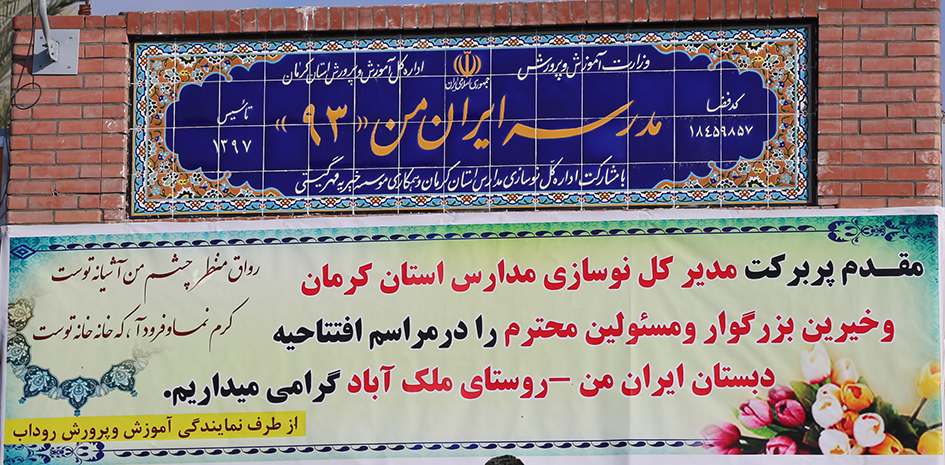 وزارت آموزش و پرورش
جمهوری اسلامی ایران
اداره کل آموزش و پرورش استان کرمان
کدفضا
۱۸۴۵۹۸۵۷
مدرسه ایران من «۹۳»
تأسیس
۱۳۹۷
با مشارکت اداره کل نوسازی مدارس استان کرمان و همکاری موسسه خیریه مهرگیتی
مقدم پربرکت مدیر کل نوسازی مدارس استان کرمان
وخیرین بزرگوار ومسئولین محترم را درمراسم افتتاحیه
دبستان ایران من –روستای ملک آباد گرامی میداریم.
رواق منظر چشم من آشیانه توست
کرم نما و فرود آ، که خانه خانه توست
از طرف نمایندگی آموزش وپرورش روداب